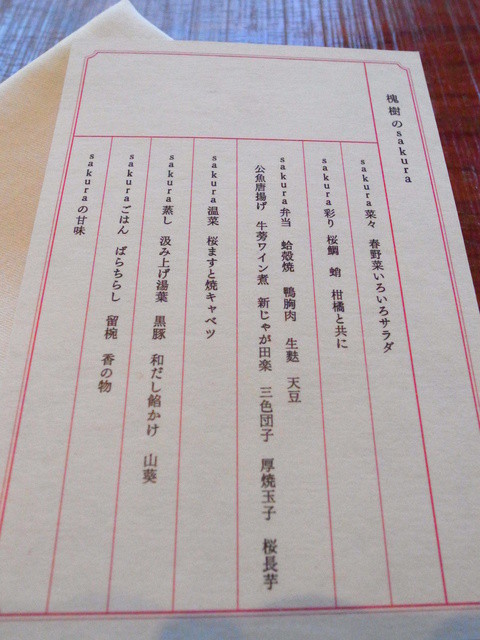 槐樹のsakura
sakura菜々 春野菜いろいろサラダ
sakura彩り 桜鯛 蛸 柑橘と共に
sakura弁当 蛤殻焼 鴨胸肉 生麩 天豆
公魚唐揚げ 牛蒡ワイン煮 新じゃが田楽 三色団子 厚焼玉子 桜長芋
sakura温菜 桜ますと焼キャベツ
sakura蒸し 汲み上げ湯葉 黒豚 和だし餡かけ 山葵
sakuraごはん ばらちらし 留椀 香の物
sakuraの甘味